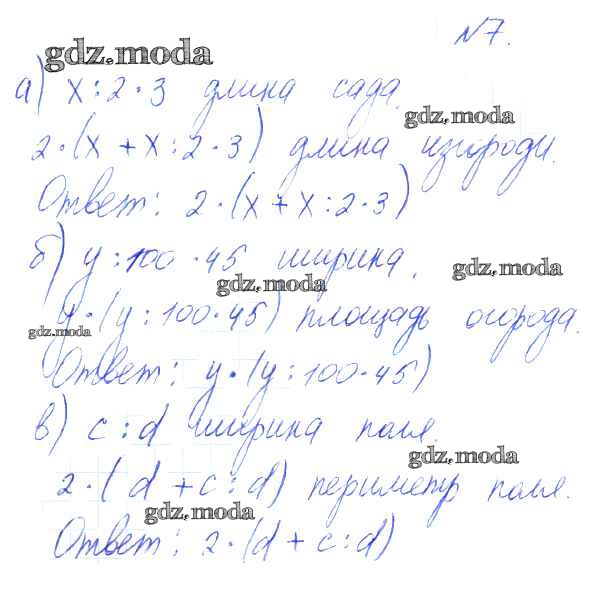 №7.
gdz.moda
а) x : 2 · 3 длина сада.
gdz.moda
2 · (x + x : 2 · 3) длина изгороди.
Ответ: 2 · (x + x : 2 · 3)
б) y : 100 · 45 ширина.
gdz.moda
gdz.moda
y · (y : 100 · 45) площадь огорода.
gdz.moda
Ответ: y · (y : 100 · 45)
в) c : d ширина поля.
gdz.moda
2 · (d + c : d) периметр поля.
gdz.moda
Ответ: 2 · (d + c : d)